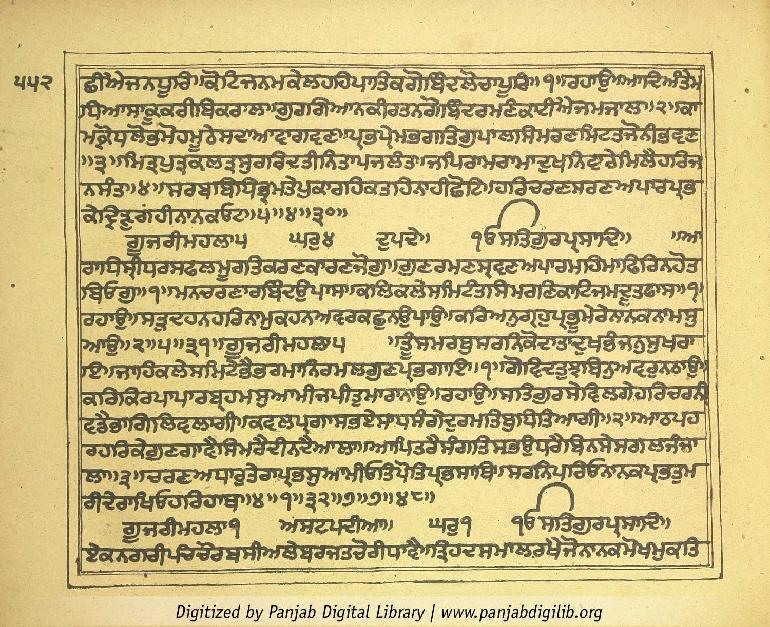 ੫੫੨
ਛੀਐਜਨਧੂਰਿ॥ਕੋਟਿਜਨਮਕੇਲਹਹਿਪਾਤਿਕਗੋਬਿੰਦਲੋਚਾਪੂਰਿ॥੧॥ਰਹਾਉ॥ਆਦਿਅੰਤੇਮ
ਧਿਆਸਾਕੂਕਰੀਬਿਕਰਾਲਾ॥ਗੁਰਗਿਆਨਕੀਰਤਨਗੋਬਿੰਦਰਮਣੰਕਾਟੀਐਜਮਜਾਲਾ॥੨॥ਕਾ
ਮਕ੍ਰੋਧਲੋਭਮੋਹਮੂਠੇਸਦਾਆਵਾਗਵਣ॥ਪ੍ਰਭਪ੍ਰੇਮਭਗਤਿਗੁਪਾਲਸਿਮਰਣਮਿਟਤਜੋਨੀਭਵਣ
॥੩॥ਮਿਤ੍ਰਪੁਤ੍ਰਕਲਤ੍ਰਸੁਰਰਿਦਤੀਨਿਤਾਪਜਲੰਤ॥ਜਪਿਰਾਮਰਾਮਾਦੁਖਨਿਵਾਰੇਮਿਲੈਹਰਿਜ
ਨਸੰਤ॥੪॥ਸਰਬਬਿਧਿਭ੍ਰਮਤੇਪੁਕਾਰਹਿਕਤਹਿਨਾਹੀਛੋਟਿ॥ਹਰਿਚਰਣਸਰਣਅਪਾਰਪ੍ਰਭ
ਕੇਦ੍ਰਿੜੁਗਹੀਨਾਨਕਓਟ॥੫॥੪॥੩੦॥
ਗੂਜਰੀਮਹਲਾ੫ ਘਰੁ੪ ਦੁਪਦੇ॥ ੧ਓਸਤਿਗੁਰਪ੍ਰਸਾਦਿ॥ ॥ਆ
ਰਾਧਿਸ੍ਰੀਧਰਸਫਲਮੂਰਤਿਕਰਣਕਾਰਣਜੋਗੁ॥ਗੁਣਰਮਣਸ੍ਰਵਣਅਪਾਰਮਹਿਮਾਫਿਰਿਨਹੋਤ
ਬਿਓਗੁ॥੧॥ਮਨਚਰਣਾਰਬਿੰਦਉਪਾਸ॥ਕਲਿਕਲੇਸਮਿਟੰਤਸਿਮਰਣਿਕਾਟਿਜਮਦੂਤਫਾਸ॥੧॥
ਰਹਾਉ॥ਸਤ੍ਰੁਦਹਨਹਰਿਨਾਮਕਹਨਅਵਰਕਛੁਨਉਪਾਉ॥ਕਰਿਅਨੁਗ੍ਰਹੁਪ੍ਰਭੂਮੇਰੇਨਾਨਕਨਾਮਸੁ
ਆਉ॥੨॥੫॥੩੧॥ਗੂਜਰੀਮਹਲਾ੫ ॥ਤੂੰਸਮਰਥੁਸਰਨਿਕੋਦਾਤਾਦੁਖਭੰਜਨੁਸੁਖਰਾ
ਇ॥ਜਾਹਿਕਲੇਸਮਿਟੇਭੈਭਰਮਾਨਿਰਮਲਗੁਣਪ੍ਰਭਗਾਇ॥੧॥ਗੋਵਿੰਦਤੁਝਬਿਨੁਅਵਰੁਨਠਾਉ॥
ਕਰਿਕਿਰਪਾਪਾਰਬ੍ਰਹਮਸੁਆਮੀਜਪੀਤੁਮਾਰਾਨਾਉ॥ਰਹਾਉ॥ਸਤਿਗੁਰਸੇਵਿਲਗੇਹਰਿਚਰਨੀ
ਵਡੈਭਾਗਿਲਿਵਲਾਗੀ॥ਕਵਲਪ੍ਰਗਾਸਭਏਸਾਧਸੰਗੇਦੁਰਮਤਿਬੁਧਿਤਿਆਗੀ॥੨॥ਆਠਪਹ
ਰਹਰਿਕੇਗੁਣਗਾਵੈਸਿਮਰੈਦੀਨਦੈਆਲਾ॥ਆਪਿਤਰੈਸੰਗਤਿਸਭਉਧਰੈਬਿਨਸੇਸਗਲਜੰਜਾ
ਲਾ॥੩॥ਚਰਣਅਧਾਰੁਤੇਰਾਪ੍ਰਭਸੁਆਮੀਓਤਿਪੋਤਿਪ੍ਰਭਸਾਥਿ॥ਸਰਨਿਪਰਿਓਨਾਨਕਪ੍ਰਭਤੁਮ
ਰੀਦੇਰਾਖਿਓਹਰਿਹਾਥ॥੪॥੧॥੩੨॥੭॥੭॥੪੮॥
ਗੂਜਰੀਮਹਲਾ੧ ਅਸਟਪਦੀਆ॥ ਘਰੁ੧ ੧ਓਸਤਿਗੁਰਪ੍ਰਸਾਦਿ॥
ਏਕਨਗਰੀਪਚਚੋਰਬਸੀਅਲੇਬਰਜਤਚੋਰੀਧਾਵੈ॥ਤ੍ਰਿਹਦਸਮਾਲਰਖੈਜੋਨਾਨਕਮੋਖਮੁਕਤਿ
Digitized by Panjab Digital Library | www.panjabdigilib.org